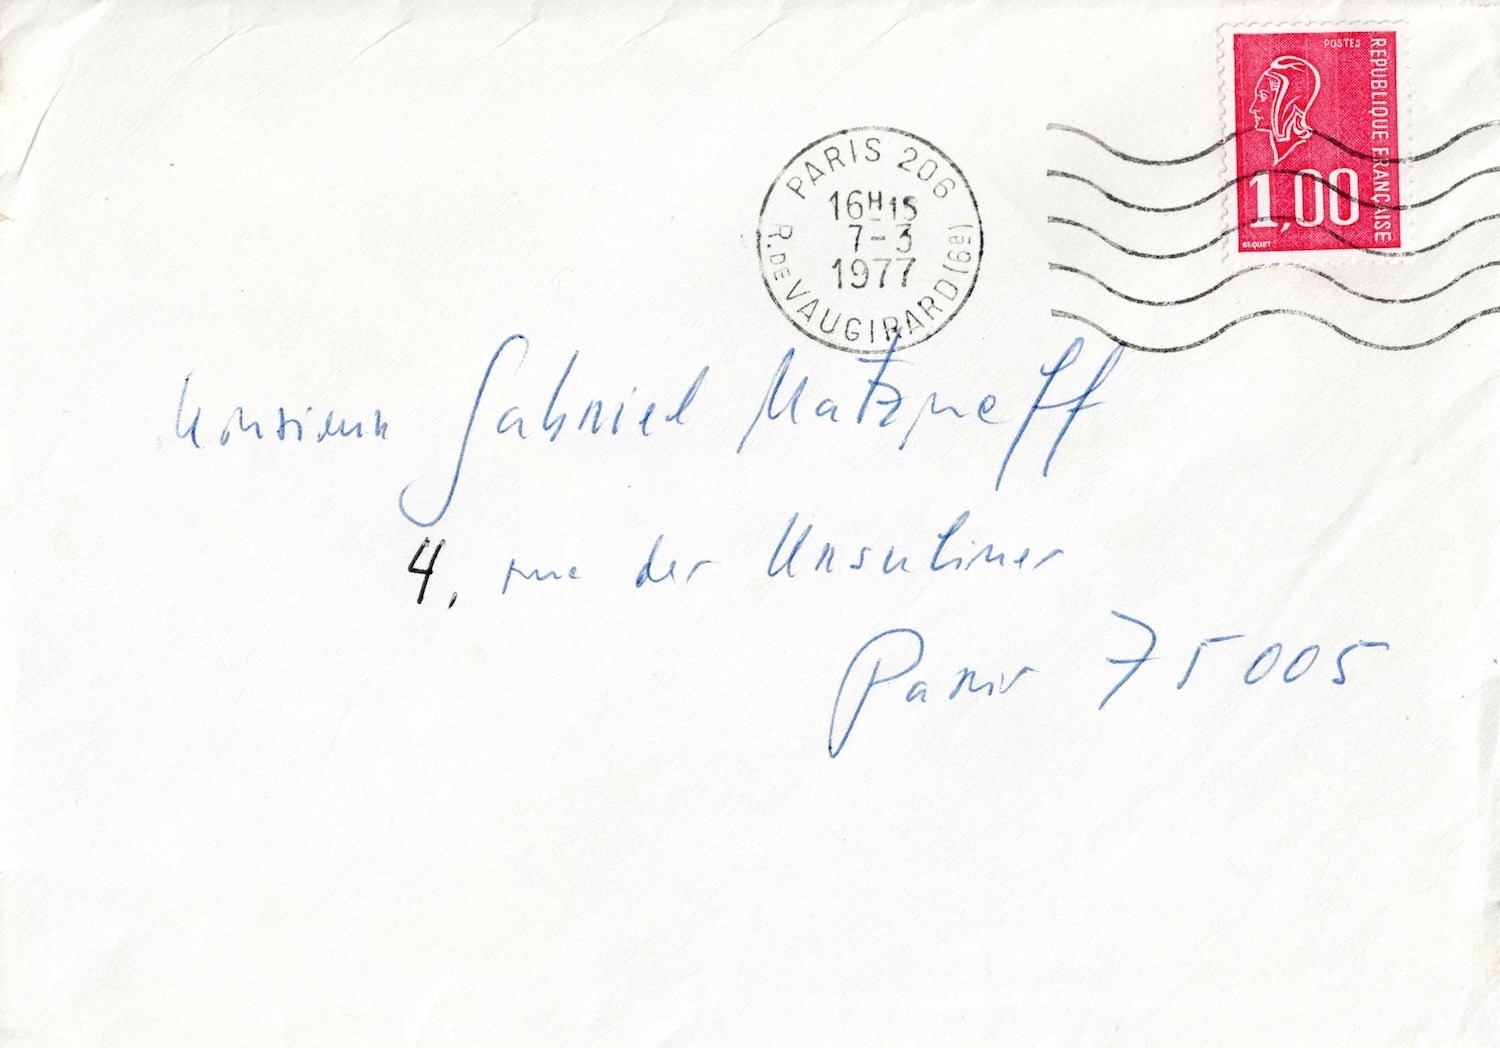 POSTES
REPUBLIQUE FRANÇAISE
1,00
BEQUET
PARIS 206
16H15
7-3
1977
R. DE VAUGIRARD (6e)
Monsieur Gabriel Matzneff
4, rue des Ursulines
Paris 75005